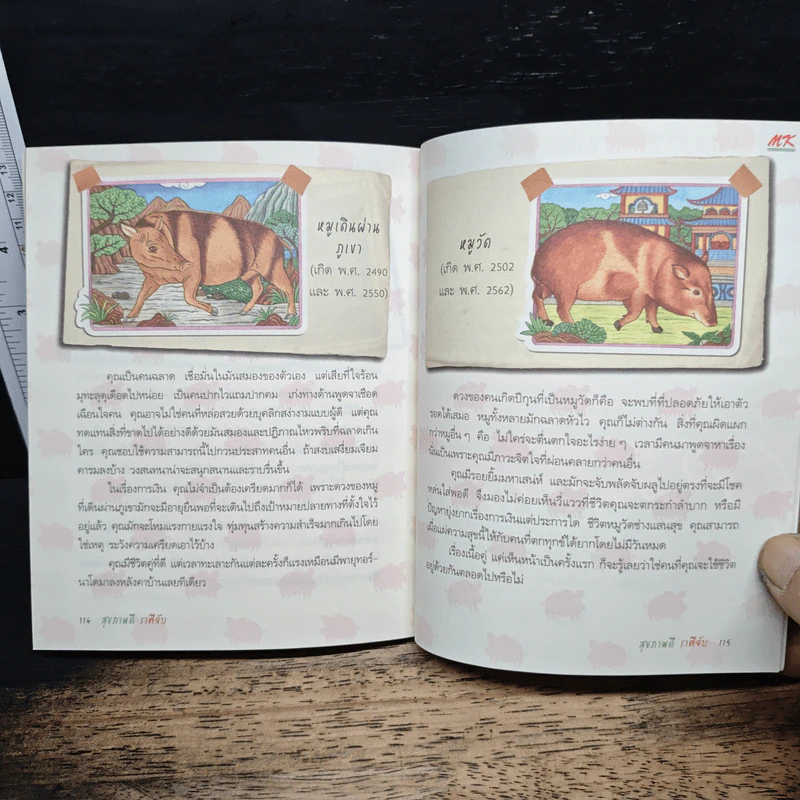 หมูเดินผ่าน
ภูเขา
(เกิด พ.ศ. 2490
และ พ.ศ. 2550)
คุณเป็นคนฉลาด เชื่อมั่นในมันสมองของตัวเอง แต่เสียที่ใจร้อน
มุทะลุดุเดือดไปหน่อย เป็นคนปากไวแถมปากคม เก่งทางด้านพูดจาเชือด
เฉือนใจคน คุณอาจไม่ใช่คนที่หล่อสวยด้วยบุคลิกสง่างามแบบผู้ดี แต่คุณ
ทดแทนสิ่งที่ขาดไปได้อย่างดีด้วยมันสมองและปฏิภาณไหวพริบที่ฉลาดเกิน
ใคร คุณชอบใช้ความสามารถนี้ไปกวนประสาทคนอื่น ถ้าสงบเสงี่ยมเจียม
คารมลงบ้าง วงสนทนาน่าจะสนุกสนานและราบรื่นขึ้น
ในเรื่องการเงิน คุณไม่จำเป็นต้องเครียดมากก็ได้ เพราะดวงของหมู
ที่เดินผ่านภูเขามักจะมีอายุยืนพอที่จะเดินไปถึงเป้าหมายปลายทางที่ตั้งใจไว้
อยู่แล้ว คุณมักจะโหมแรงกายแรงใจ ทุ่มทุนสร้างความสำเร็จมากเกินไปโดย
ใช่เหตุ ระวังความเครียดเอาไว้บ้าง
คุณมีชีวิตคู่ที่ดี แต่เวลาทะเลาะกันแต่ละครั้งก็แรงเหมือนมีพายุทอร์-
นาโดมาลงหลังคาบ้านเลยทีเดียว
114 สุขภาพดี ราศีจับ
MK
หมูวัด
(เกิด พ.ศ. 2502
และ พ.ศ. 2562)
ดวงของคนเกิดปีกุนที่เป็นหมูวัดก็คือ จะพบที่ที่ปลอดภัยให้เอาตัว
รอดได้เสมอ หมูทั้งหลายมักฉลาดหัวไว คุณก็ไม่ต่างกัน สิ่งที่คุณผิดแผก
กว่าหมูอื่นๆ คือ ไม่ใคร่จะตื่นตกใจอะไรง่ายๆ เวลามีคนมาพูดจาหาเรื่อง
นั่นเป็นเพราะคุณมีภาวะจิตใจที่ผ่อนคลายกว่าคนอื่น
คุณมีรอยยิ้มมหาเสน่ห์ และมักจะจับพลัดจับผลูไปอยู่ตรงที่จะมีโชค
หล่นใส่พอดี จึงมองไม่ค่อยเห็นวี่แววที่ชีวิตคุณจะตกระกำลำบาก หรือมี
ปัญหายุ่งยากเรื่องการเงินแต่ประการใด ชีวิตหมูวัดช่างแสนสุข คุณสามารถ
เผื่อแผ่ความสุขนี้ให้กับคนที่ตกทุกข์ได้ยากโดยไม่มีวันหมด
เรื่องเนื้อคู่ แค่เห็นหน้าเป็นครั้งแรก ก็จะรู้เลยว่าใช่คนที่คุณจะใช้ชีวิต
อยู่ด้วยกันตลอดไปหรือไม่
สุขภาพดี ราศีจับ 115